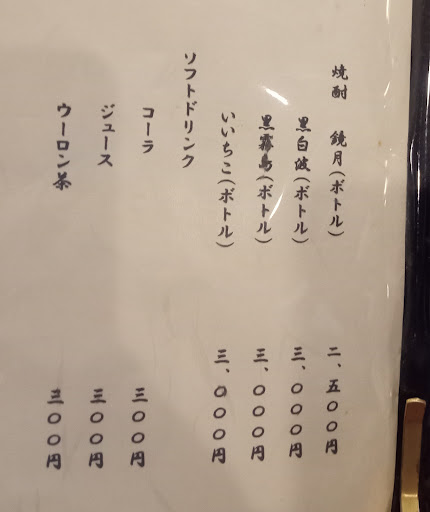 焼酎 鏡月(ボトル) 二、五〇〇円
黒白波(ボトル) 三、〇〇〇円
黒霧島(ボトル) 三、〇〇〇円
いいちこ(ボトル) 三、〇〇〇円
ソフトドリンク
コーラ 三〇〇円
ジュース 三〇〇円
ウーロン茶 三〇〇円